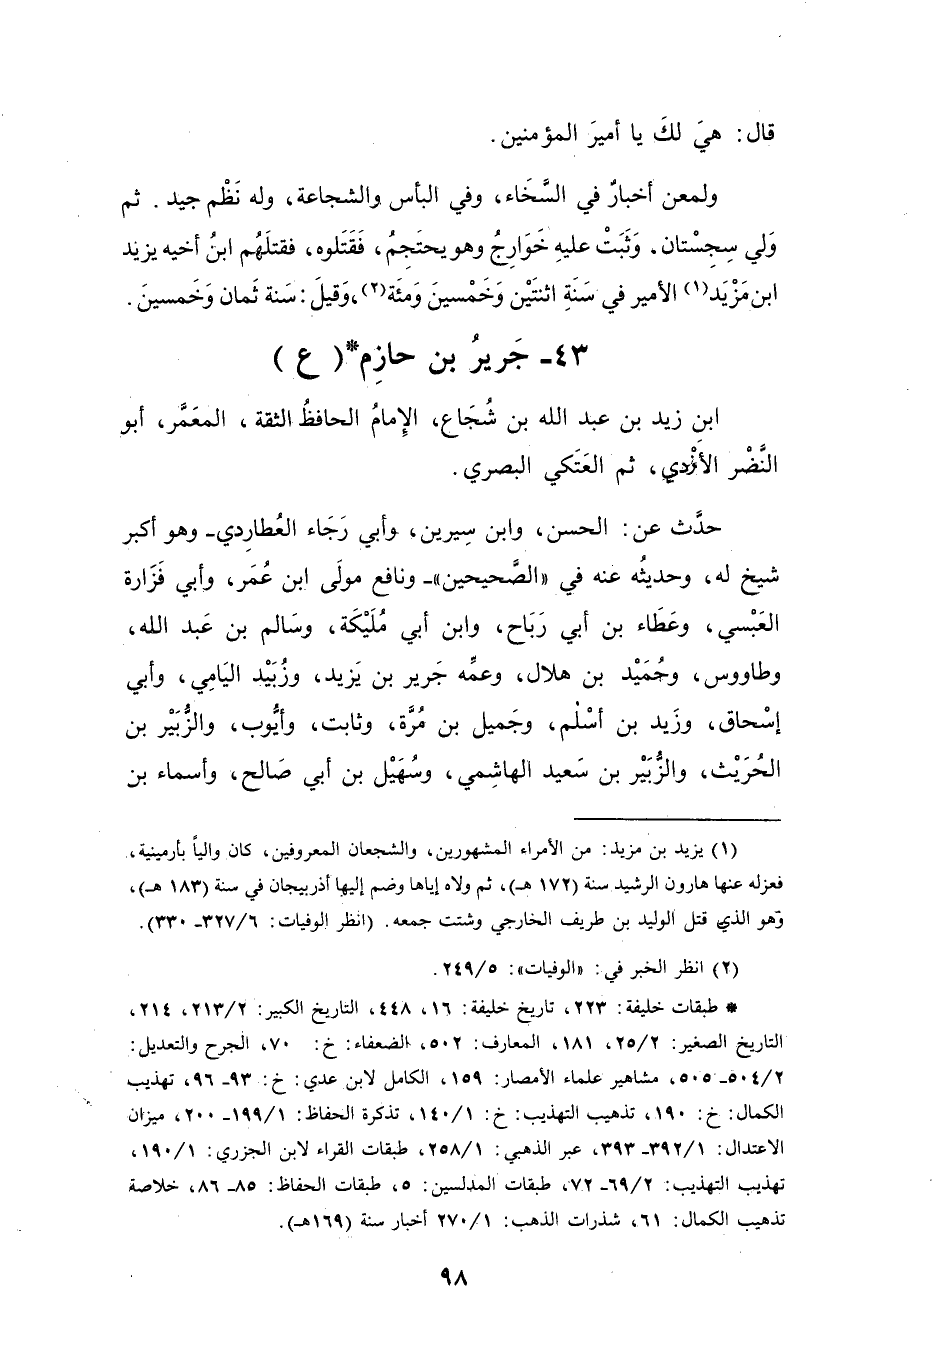 قال: هيَ لكَ يا أميرَ المؤمنين.
ولمعن أخبارٌ في السَّخَاء، وفي البأس والشجاعة، وله نَظْم جيد. ثم
وَلي سِجِسْتان. وَثَبَتْ عليهِ خَوارِجُ وهو يحتَجِمُ، فَقَتَلوه، فقتلَهُم ابنُ أخيه يزيد
ابن مَزْيَد(١) الأمير في سَنَةِ اثنتَيْن وَخَمْسينَ وَمئَة(٢)، وَقيلَ: سَنة ثَمان وَخَمسينَ.
٤٣ـ جَريرُ بن حازِم*( ع )
ابن زيد بن عبد الله بن شُجَاع، الإِمامُ الحافظُ الثقة، المعَمَّر، أبو
النَّضْر الأَزْدي، ثم العَتَكي البصري.
حدَّث عن: الحسن، وابن سِيرين، وأبي رَجَاء العُطارِدي ـ وهو أكبر
شيخ له، وحديثُه عنه في «الصَّحيحين» ـ ونافع مولَى ابن عُمَر، وأبي فَزَارة
العَبْسي، وعَطَاء بن أبي رَبَاح، وابن أبي مُلَيْكَة، وسَالم بن عَبد الله،
وطاووس، وحُمَيْد بن هلال، وعمِّه جَرير بن يَزيد، وزُبَيْد اليَامِي، وأبي
إسْحاق، وزَيد بن أسْلم، وجَميل بن مُرَّة، وثابت، وأيُّوب، والزُّبَيْر بن
الخُرَيْث، والزُّبَيْر بن سَعيد الهاشِمي، وسُهَيْل بن أبي صَالح، وأسماء بن
(١) يزيد بن مزيد: من الأمراء المشهورين، والشجعان المعروفين، كان والياً بأرمينية،
فعزله عنها هارون الرشيد سنة (١٧٢ هـ)، ثم ولاه إياها وضم إليها أذربيجان في سنة (١٨٣ هـ)،
وهو الذي قتل الوليد بن طريف الخارجي وشتت جمعه. (انظر الوفيات: ٣٢٧/٦ـ ٣٣٠).
(٢) انظر الخبر في: «الوفيات»: ٢٤٩/٥.
* طبقات خليفة: ٢٢٣، تاريخ خليفة: ١٦، ٤٤٨، التاريخ الكبير: ٢١٣/٢، ٢١٤،
التاريخ الصغير: ٢٥/٢، ١٨١، المعارف: ٥٠٢، الضعفاء: خ: ٧٠، الجرح والتعديل:
٥٠٤/٢ـ ٥٠٥، مشاهير علماء الأمصار: ١٥٩، الكامل لابن عدي: خ: ٩٣ـ ٩٦، تهذيب
الكمال: خ: ١٩٠، تذهيب التهذيب: خ: ١٤٠/١، تذكرة الحفاظ: ١٩٩/١ـ ٢٠٠، ميزان
الاعتدال: ٣٩٢/١ـ ٣٩٣، عبر الذهبي: ٢٥٨/١، طبقات القراء لابن الجزري: ١٩٠/١،
تهذيب التهذيب: ٦٩/٢ـ ٧٢، طبقات المدلسين: ٥، طبقات الحفاظ: ٨٥ـ ٨٦، خلاصة
تذهيب الكمال: ٦١، شذرات الذهب: ٢٧٠/١ أخبار سنة (١٦٩هـ).
٩٨